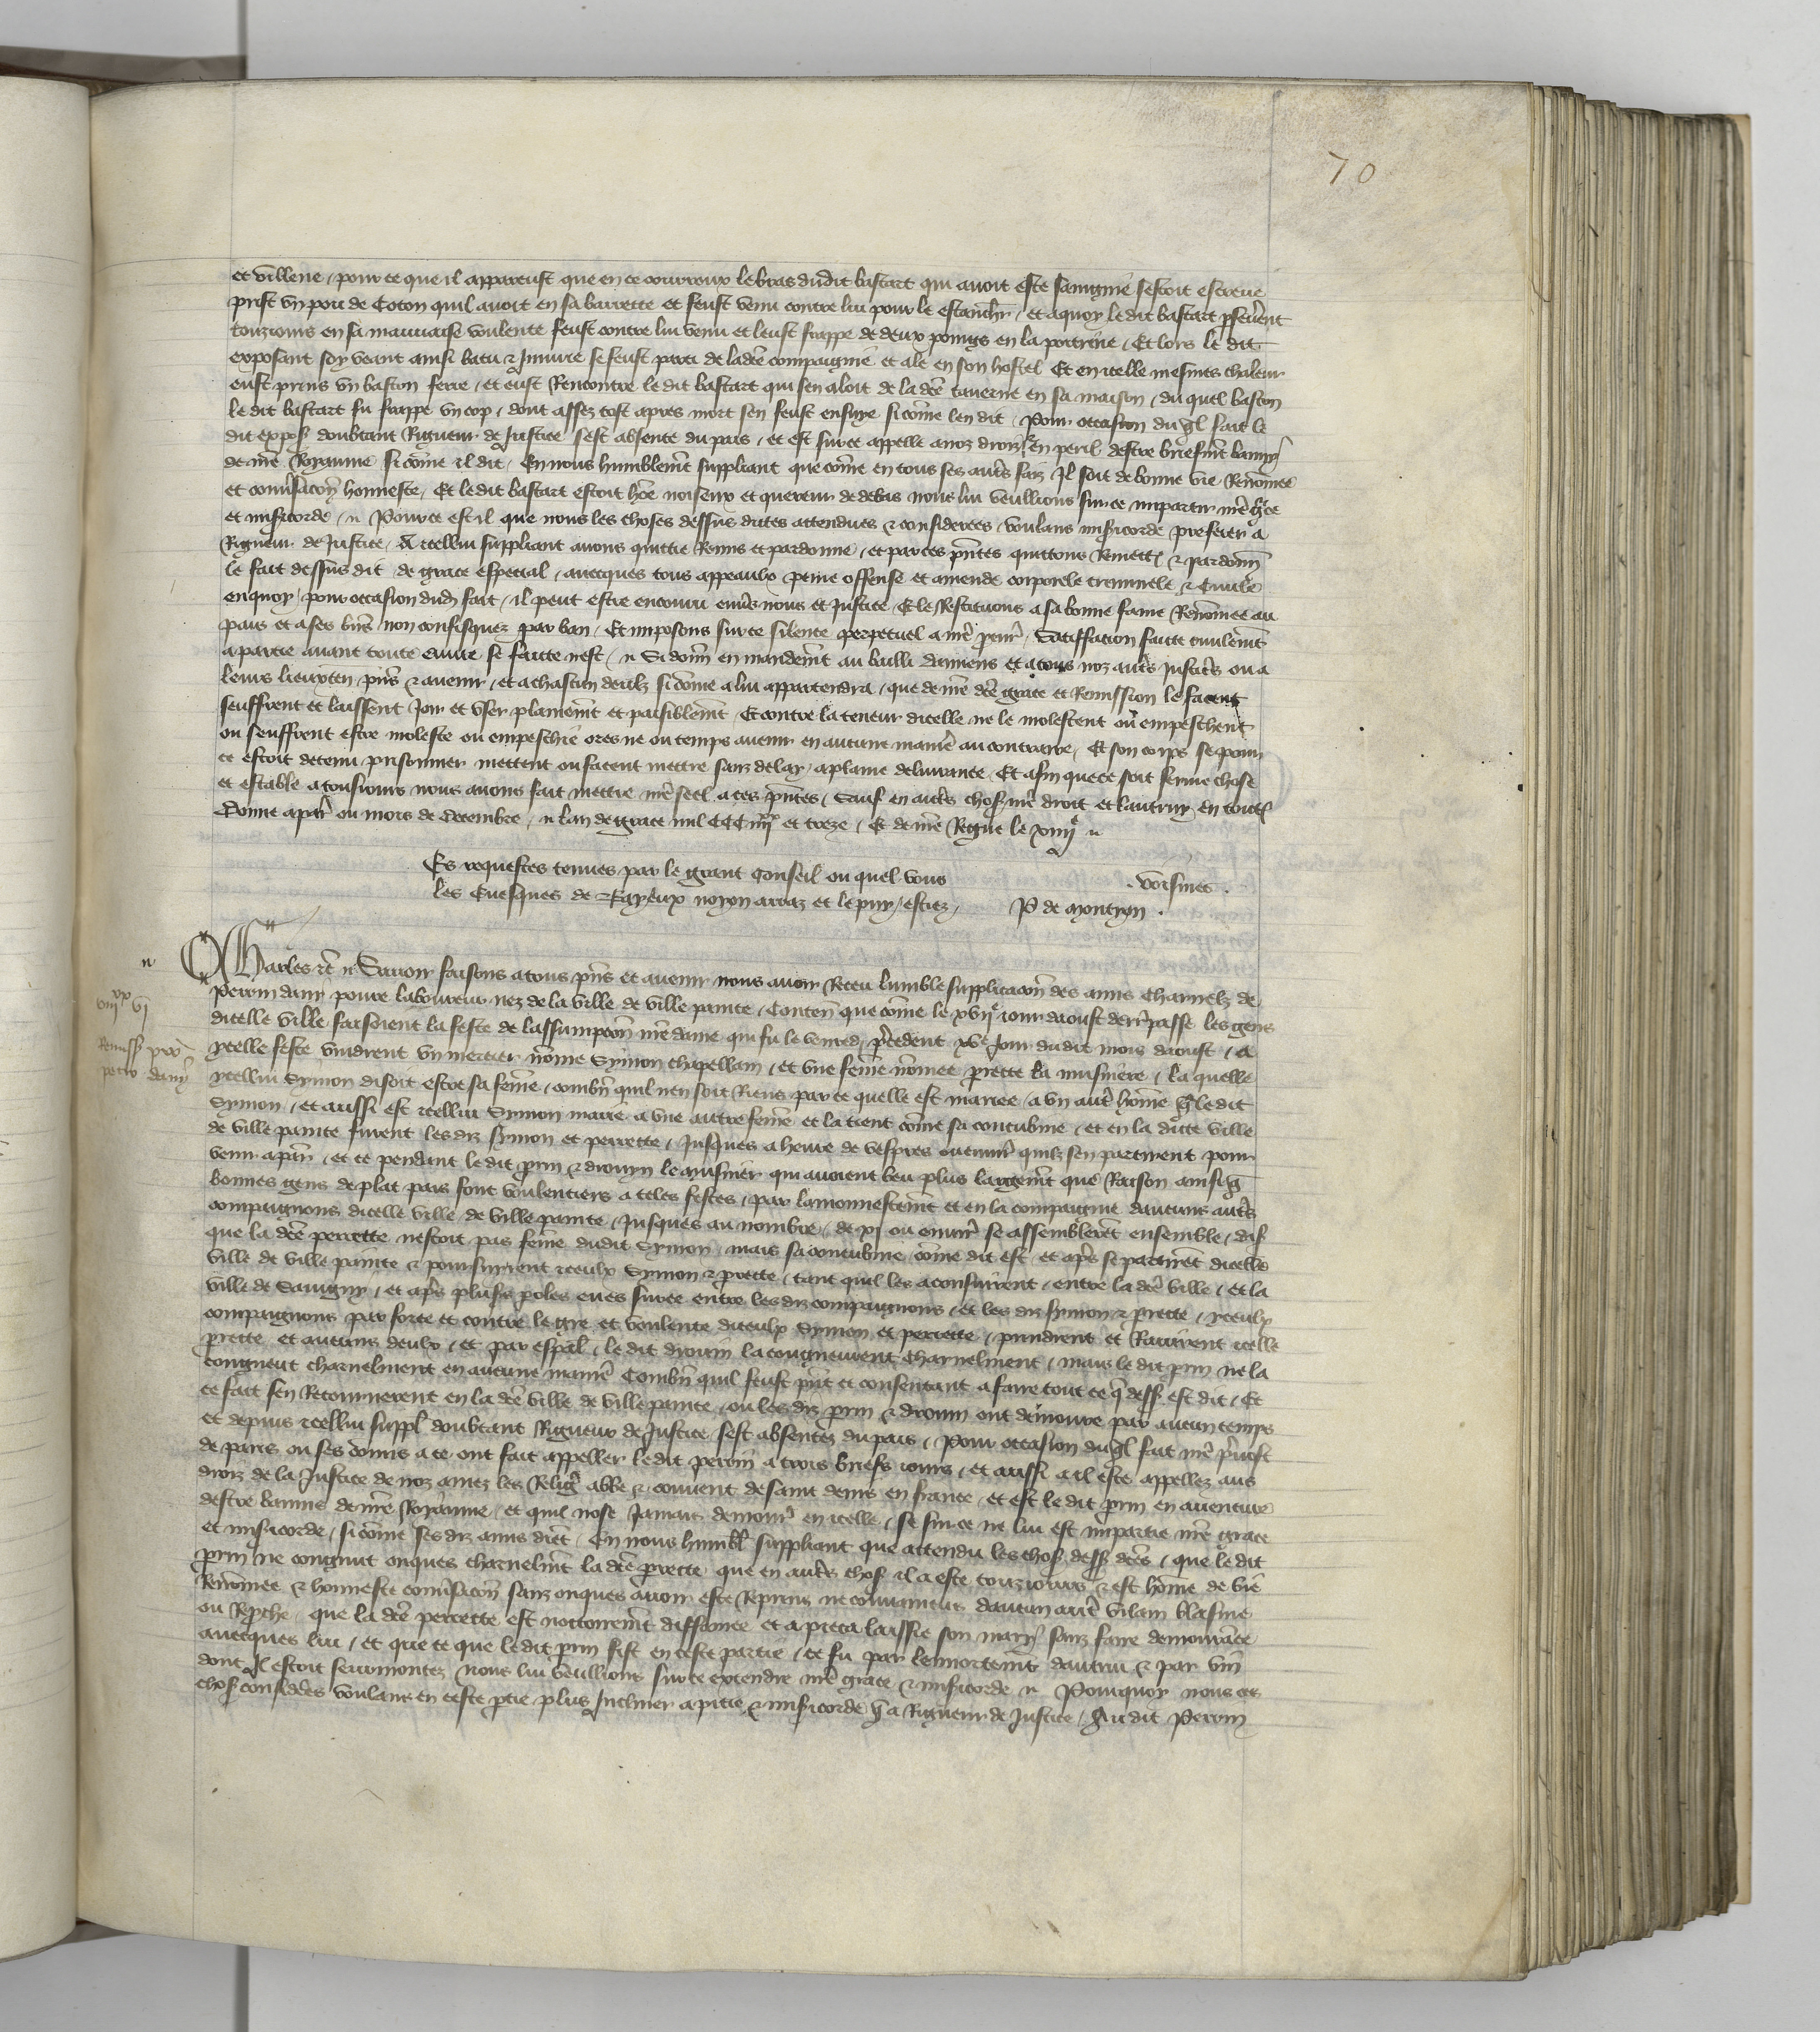 70
et villenie, pour ce que il apparceust que en ce courroux le bras dudit bastart qui avoit esté sauignié sestoit escreve
prist un pou de Coton quil avoit en sa barrette et feust venu contre lui pour le estanch̄r, et aquoy ledit bastart ꝑseverent
touzjours en sa mauvaise voulente feust contre lui venu et leust frappe de deux poings en la poictrine, Et lors le dit
exposant soy veant ainsi batu ⁊ Injurié se feust parti de ladc̄e compaignie et alé en son hostel Et en icelle mesmes chaleur
eust prins un baston ferré, et eust Rencontre ledit bastart qui sen aloit de la dc̄e taverne en sa maison, du quel baston
le dit bastart fu frappe un cop, dont assez tost apres mort sen feust ensuye si com̄e len dit, Pour occasion duql̄ fait le
dit expos̄ doubtant Rigueur de Justice sest absente du pais, et est sur ce appelle a noz droiz ⁊ en peril destre briefmēt banny
de nr̄e Royaume si com̄e il dit, En nous humblemēt suppliant que com̄e en tous ses autr̄s faiz Il soit de bonne vie Renom̄ee
et conv̄sacōn honneste, Et ledit bastart estoit hōe noiseux et quereur de debas nous lui veullions sur ce impartir nr̄e gr̄ce
et mis̄icorde, Pour ce est il que nous les choses dessus dictes attendues ⁊ considerees, voulans mis̄icorde preferer a
Rigueur de Justice, A icellui suppliant avons quittie Remis et pardonne, et par ces pn̄tes quittons Remett̄ ⁊ pardon̄n
le fait dessus dit de grace especial, avecques tous appeaulx peine offense et amende corporele criminele ⁊ Civile
en quoy pour occasion dud̄ fait, il peut estre encouru env̄s nous et Justice, Et le Restituons a sa bonne fame Renom̄ee au
pais et a ses biēs non confisquez par ban, Et imposons sur ce silence perpetuel a nr̄e ꝓcur̄, Satisfaction faicte civilemēt
a partie avant toute euvre se faicte nest, Si donn̄ en mandemēt au bailli damiens et a tous noz autr̄s Justicr̄s ou a
leurs lieuxten̄ pn̄s ⁊ avenir, et a chascun deulz si com̄e a lui appartendra, que de nr̄e dc̄e grace et Remission le facent
seuffrent et laissent Joir et user plainemēt et paisiblemēt Et contre la teneur dicelle ne le molestent ou empeschent
ou seuffrent estre moleste ou empeschie ores ne ou temps avenir en aucune manr̄e au contraire, Et son corps se pour
ce estoit detenu prisonnier mettent ou facent mettre sanz delay a plaine delivrance, Et afin que ce soit ferme chose
et estable a tousjours nous avons fait mettre nr̄e seel a ces pn̄tes, Sauf en autr̄s chos̄ nr̄e droit et lautruy en toutes
Donne a par̄ ou mois de decembre, lan de grace mil CCC iiii^xx et treze, Et de nr̄e Regne le xiiii^e
Es requestes tenues par le grant Conseil ou quel vous
les Evesques de Bayeux noyon arraz et le puy, estiez,
. voisines .
P de montyon .
Charles ⁊c̄ Savoir faisons a tous pn̄s et avenir nous avoir Receu lumble supplicacōn des amis Charnelz de
viii^xx vi
Remissio pro
petro dany
Perrin dany povre laboureur nez de la ville de ville painte, Conten̄ que com̄e le xvii^e jour daoust derr̄ passe les gens
dicelle ville faisoient la feste de lassumpcōn nr̄e dame qui fu le vendr̄ p̄cedent xv^e Jour dudit mois daoust, A
ycelle feste vindrent un mercier nōme Symon chapellain, et une fem̄e nōmee ꝑrette la musniere, la quelle
ycellui Symon disoit estre sa fem̄e, combn̄ quil nen soit Riens par ce quelle est mariee a un autr̄ hōme q̄ ledit
Symon, et aussi est icellui Symon marie a une autre fem̄e et la tient com̄e sa concubine, et en la dicte ville
de ville painte furent les diz Symon et perrette, Jusques a heure de vespres ou envir̄ quilz sen partirent pour
venir a par̄, et ce pendant ledit ꝑrin ⁊ drouyn le musnier qui avoient beu plus largemēt que Raison ainsi q̄
bonnes gens de plat pais font voulentiers a teles festes, par lamonnestemēt et en la compaignie daucuns autr̄s
compaignons dicelle ville de ville painte, Jusques au nombre de xi ou envir̄ se assemblerēt ensemble, dis̄
que la dc̄e perrette nestoit pas fem̄e dudit Symon, mais sa concubine, com̄e dit est, et apr̄s se partirēt dicelle
ville de ville painte ⁊ poursuirent iceulx Symon ⁊ ꝑrette, tant quil les aconsuirent, entre la dc̄e ville, et la
ville de Savigny, et apr̄s plus̄s ꝑoles eues sur ce entre les diz compaignons, et les diz Symon ⁊ ꝑrette, yceulx
compaignons par force et contre le gre et voulente diceulx Symon et perrette, prindrent et Ravirent icelle
ꝑrette et aucuns deulx, et par esp̄al, le dit drouin la congneurent charnelment, mais le dit ꝑrin ne la
congneut charnelment en aucune manr̄e Combn̄ quil feust pn̄t et consentant a faire tout ce q̄ dess̄ est dit, Et
ce fait sen Retournerent en la dc̄e ville de ville painte, ou les diz ꝑrin ⁊ drouin ont demoure par aucun temps
et depuis icellui suppl̄ doubtant Rigueur de Justice, sest absentez du pais, Pour occasion duql̄ fait nr̄e p̄vost
de paris ou ses com̄is a ce ont fait appeller ledit perrin a trois briefs jours, et aussi a il este appellez aus
droiz de la Justice de noz amez les Religr̄ abbe ⁊ couvent de saint denis en france, et est le dit ꝑrin en aventure
destre banniz de nr̄e Royaume, et quil nose Jamais demour̄ en icelle, se sur ce ne lui est impartie nr̄e grace
et mis̄icorde, si com̄e ses diz amis diēt, En nous humbl̄ suppliant que attendu les chos̄ dess̄ dc̄es, que le dit
ꝑrin ne congnut onques charnelmēt la dc̄e ꝑrette que en autr̄s chos̄ il a este touzjours ⁊ est hōme de vie
Renom̄ee ⁊ honneste conv̄sacōn sanz onques avoir este Reprins ne convaincus daucun autr̄ vilain blasme
ou Reꝓche, que la dc̄e perrette est nottoiremēt diffamee et a pieca laissie son mary sanz faire demourāce
avecques lui, et que ce que le dit ꝑrin fist en ceste partie, ce fu par lennortemēt dautrui ⁊ par vin
dont Il estoit seurmontez, nous lui veullions sur ce extendre nr̄e grace ⁊ mis̄icorde Pourquoy nous ces
chos̄ considerēs voulans en ceste ꝑtie plus Incliner a pitie ⁊ mis̄icorde q̄ a Rigueur de Justice, Audit Perrin